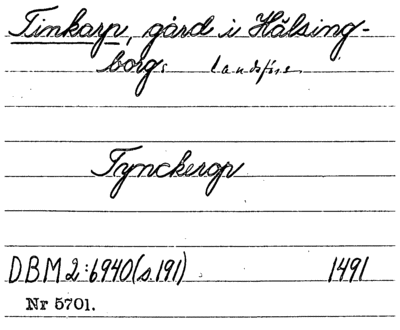 Tinkarp, gård i Hälsing-
borgs landsförs.
Tynckerop
DBM 2:6940 (s. 191) 1491
Nr 5701.